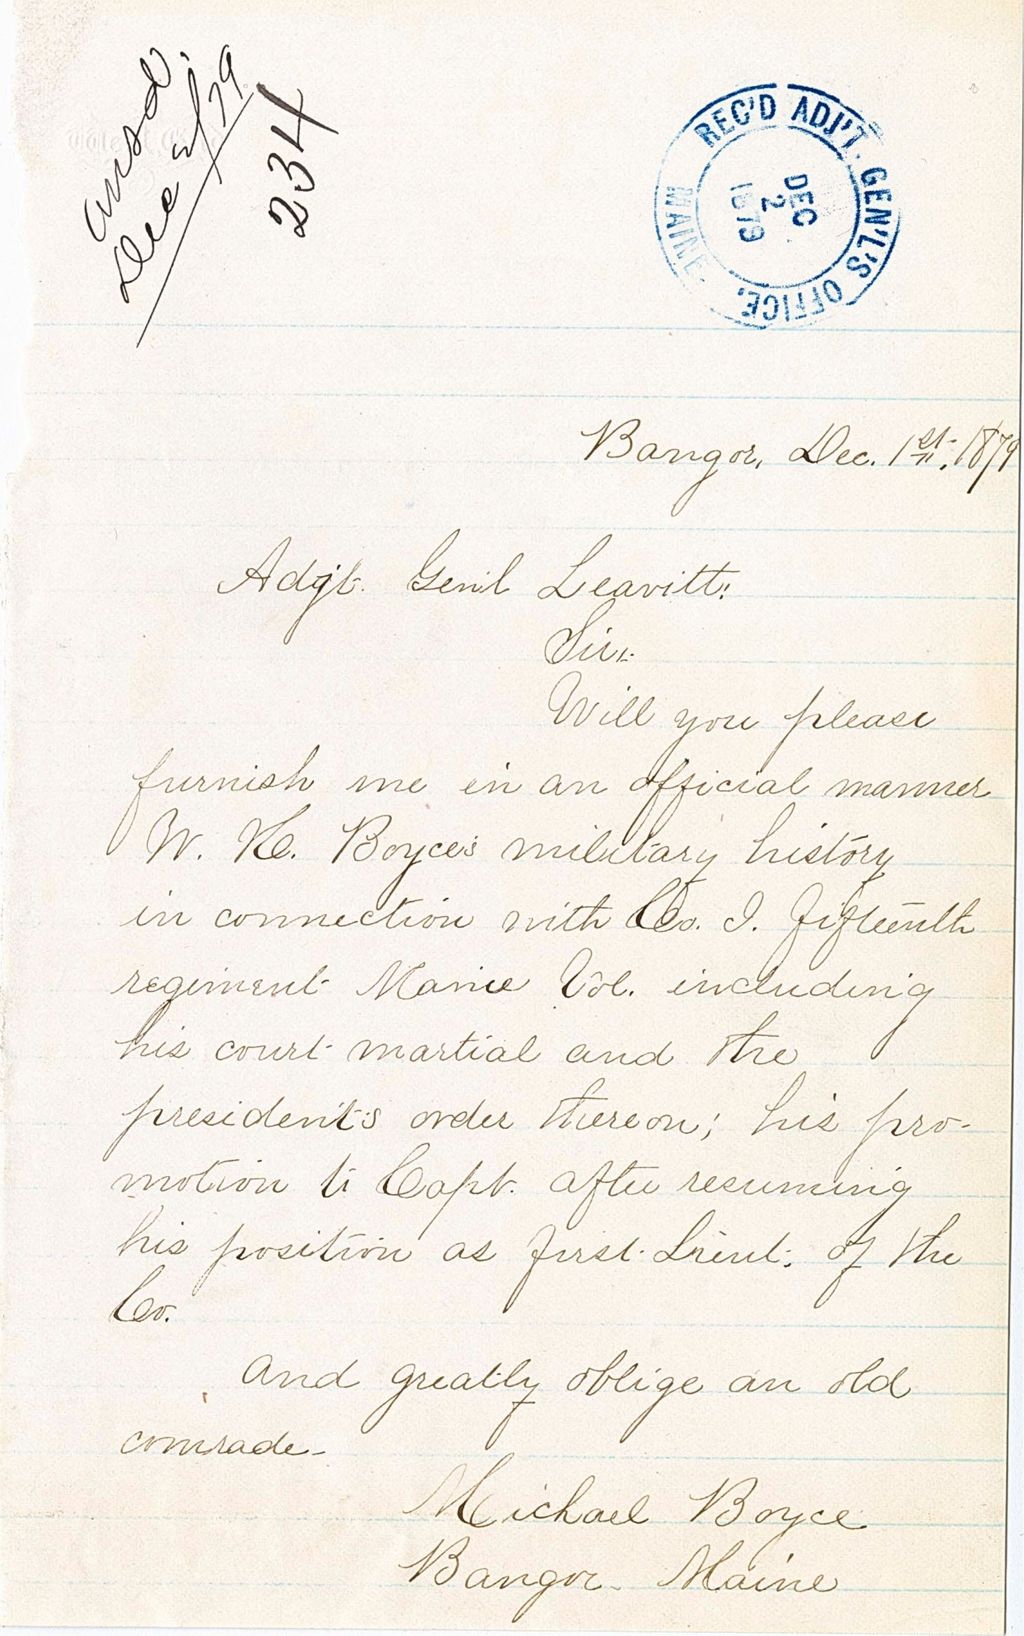 ansd.
Dec 2/79
234
REC'D ADJ'T. GEN'L'S OFFICE, MAINE.
DEC
2
1879
Bangor, Dec. 1st, 1879
Adgt. Genl Leavitt:
Sir,
Will you please
furnish me in an official manner
W. H. Boyce's military history
in connection with Co. I. fifteenth
regiment Maine Vol. including
his court martial and the
president's order thereon; his pro-
motion to Capt. after resuming
his position as first Lieut. of the
Co.
and greatly oblige an old
comrade-
Michael Boyce
Bangor. Maine